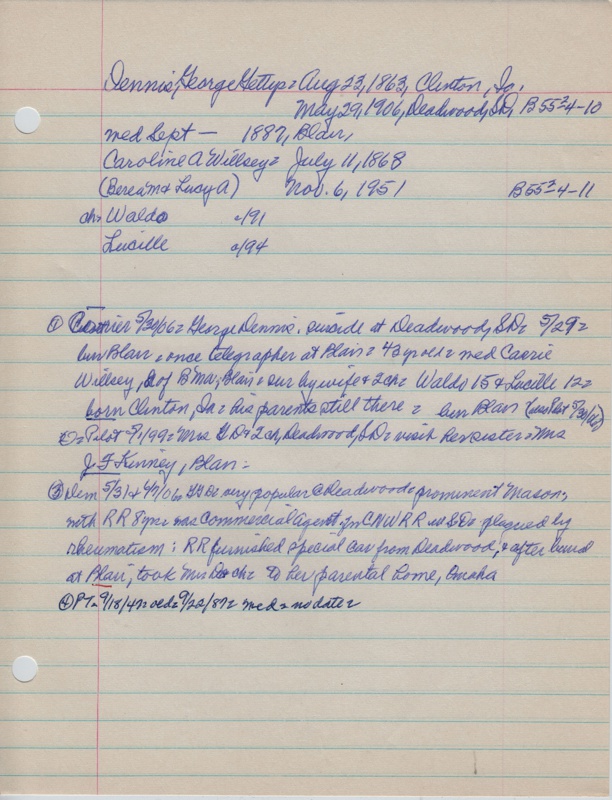 Dennis, George Gettys = Aug 23, 1863, Clinton, Io.
May 29, 1906, Deadwood, SD, B 55 3/4-10
med Sept — 1887, Blair,
Caroline A Willsey = July 11, 1868
(Berea M & Lucy A) Nov. 6, 1951 B 55 3/4-11
ch = Waldo c/91
Lucille c/94
① Courier 5/30/06 = George Dennis, suicide at Deadwood, SD = 5/29 =
bur Blair = once telegrapher at Blair = 43 yr old = med Carrie
Willsey, d of B Ma, Blair = sur by wife & 2 ch = Waldo 15 & Lucille 12 =
born Clinton, Io = his parents still there = bur Blair (
② = Pilot 9/1/99 = Mrs G D & 2 ch, Deadwood, SD = visit her sister = Mrs
J F Kenney, Blair =
③ Dem 5/31 & 6/7/06, GD = very popular @ Deadwood = prominent Mason,
with RR 8 yr = was Commercial Agent for CNW RR in SD = plagued by
rheumatism : RR furnished special car from Deadwood, & after burial
at Blair, took Mrs D & ch = to her parental home, Omaha
④ PT = 9/18/47 = 9/22/87 = med = no date =